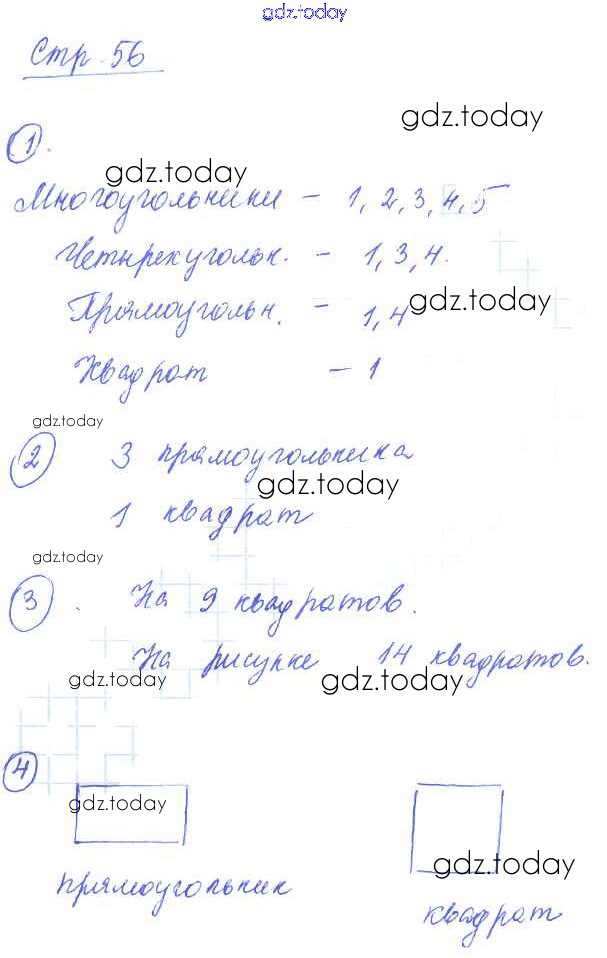 gdz.today
Стр. 56
gdz.today
1.
gdz.today
Многоугольники – 1, 2, 3, 4, 5
Четырехугольн. – 1, 3, 4.
Прямоугольн. – 1, 4
gdz.today
Квадрат – 1
gdz.today
2 3 прямоугольника
gdz.today
1 квадрат
gdz.today
3. На 9 квадратов.
На рисунке 14 квадратов.
gdz.today gdz.today
4
gdz.today
gdz.today
прямоугольник
квадрат